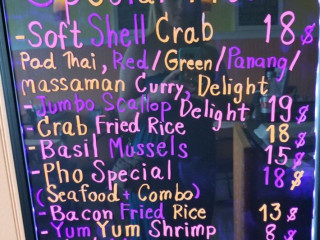 - Soft Shell Crab 18$
Pad Thai, Red/Green/Panang/
Massaman Curry, Delight
- Jumbo Scallop Delight 19$
- Crab Fried Rice 18$
- Basil Mussels 15$
- Pho Special 18$
(Seafood + Combo)
- Bacon Fried Rice 13$
- Yum Yum Shrimp 8$